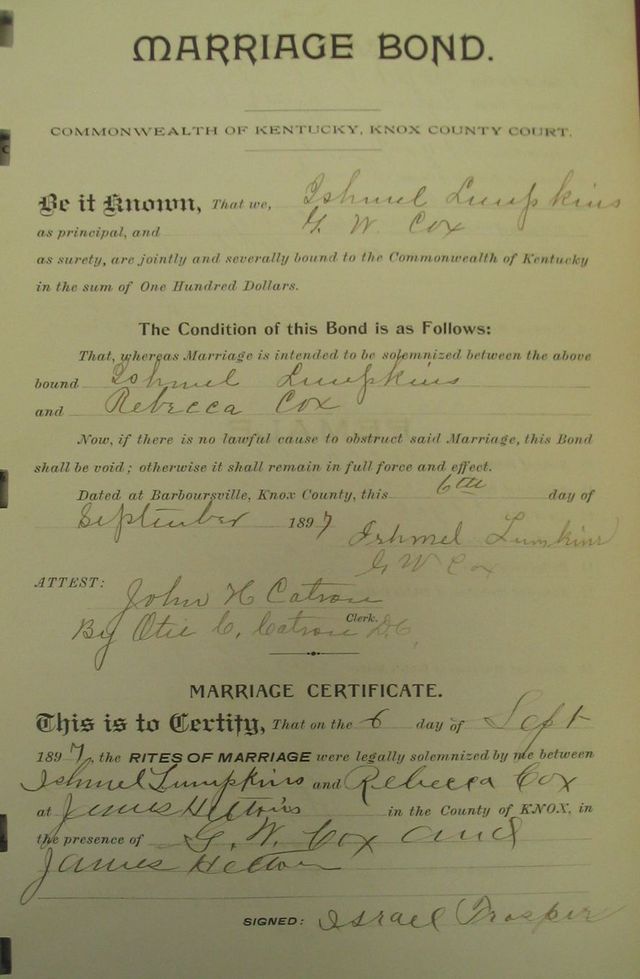 MARRIAGE BOND.
COMMONWEALTH OF KENTUCKY, KNOX COUNTY COURT.
Be it Known, That we, Ishmel Lumpkins
as principal, and G. W. Cox
as surety, are jointly and severally bound to the Commonwealth of Kentucky
in the sum of One Hundred Dollars.
The Condition of this Bond is as Follows:
That, whereas Marriage is intended to be solemnized between the above
bound Ishmel Lumpkins
and Rebecca Cox
Now, if there is no lawful cause to obstruct said Marriage, this Bond
shall be void; otherwise it shall remain in full force and effect.
Dated at Barboursville, Knox County, this 6th day of
September 1897
Ishmel Lumpkins
G W Cox
ATTEST:
John H Catron
By Otie C. Catron Clerk. D.C.
MARRIAGE CERTIFICATE.
This is to Certify, That on the 6 day of Sept
1897, the RITES OF MARRIAGE were legally solemnized by me between
Ishmel Lumpkins and Rebecca Cox
at James Heltons in the County of KNOX, in
the presence of G. W. Cox and
James Helton
SIGNED: Israel Prosper